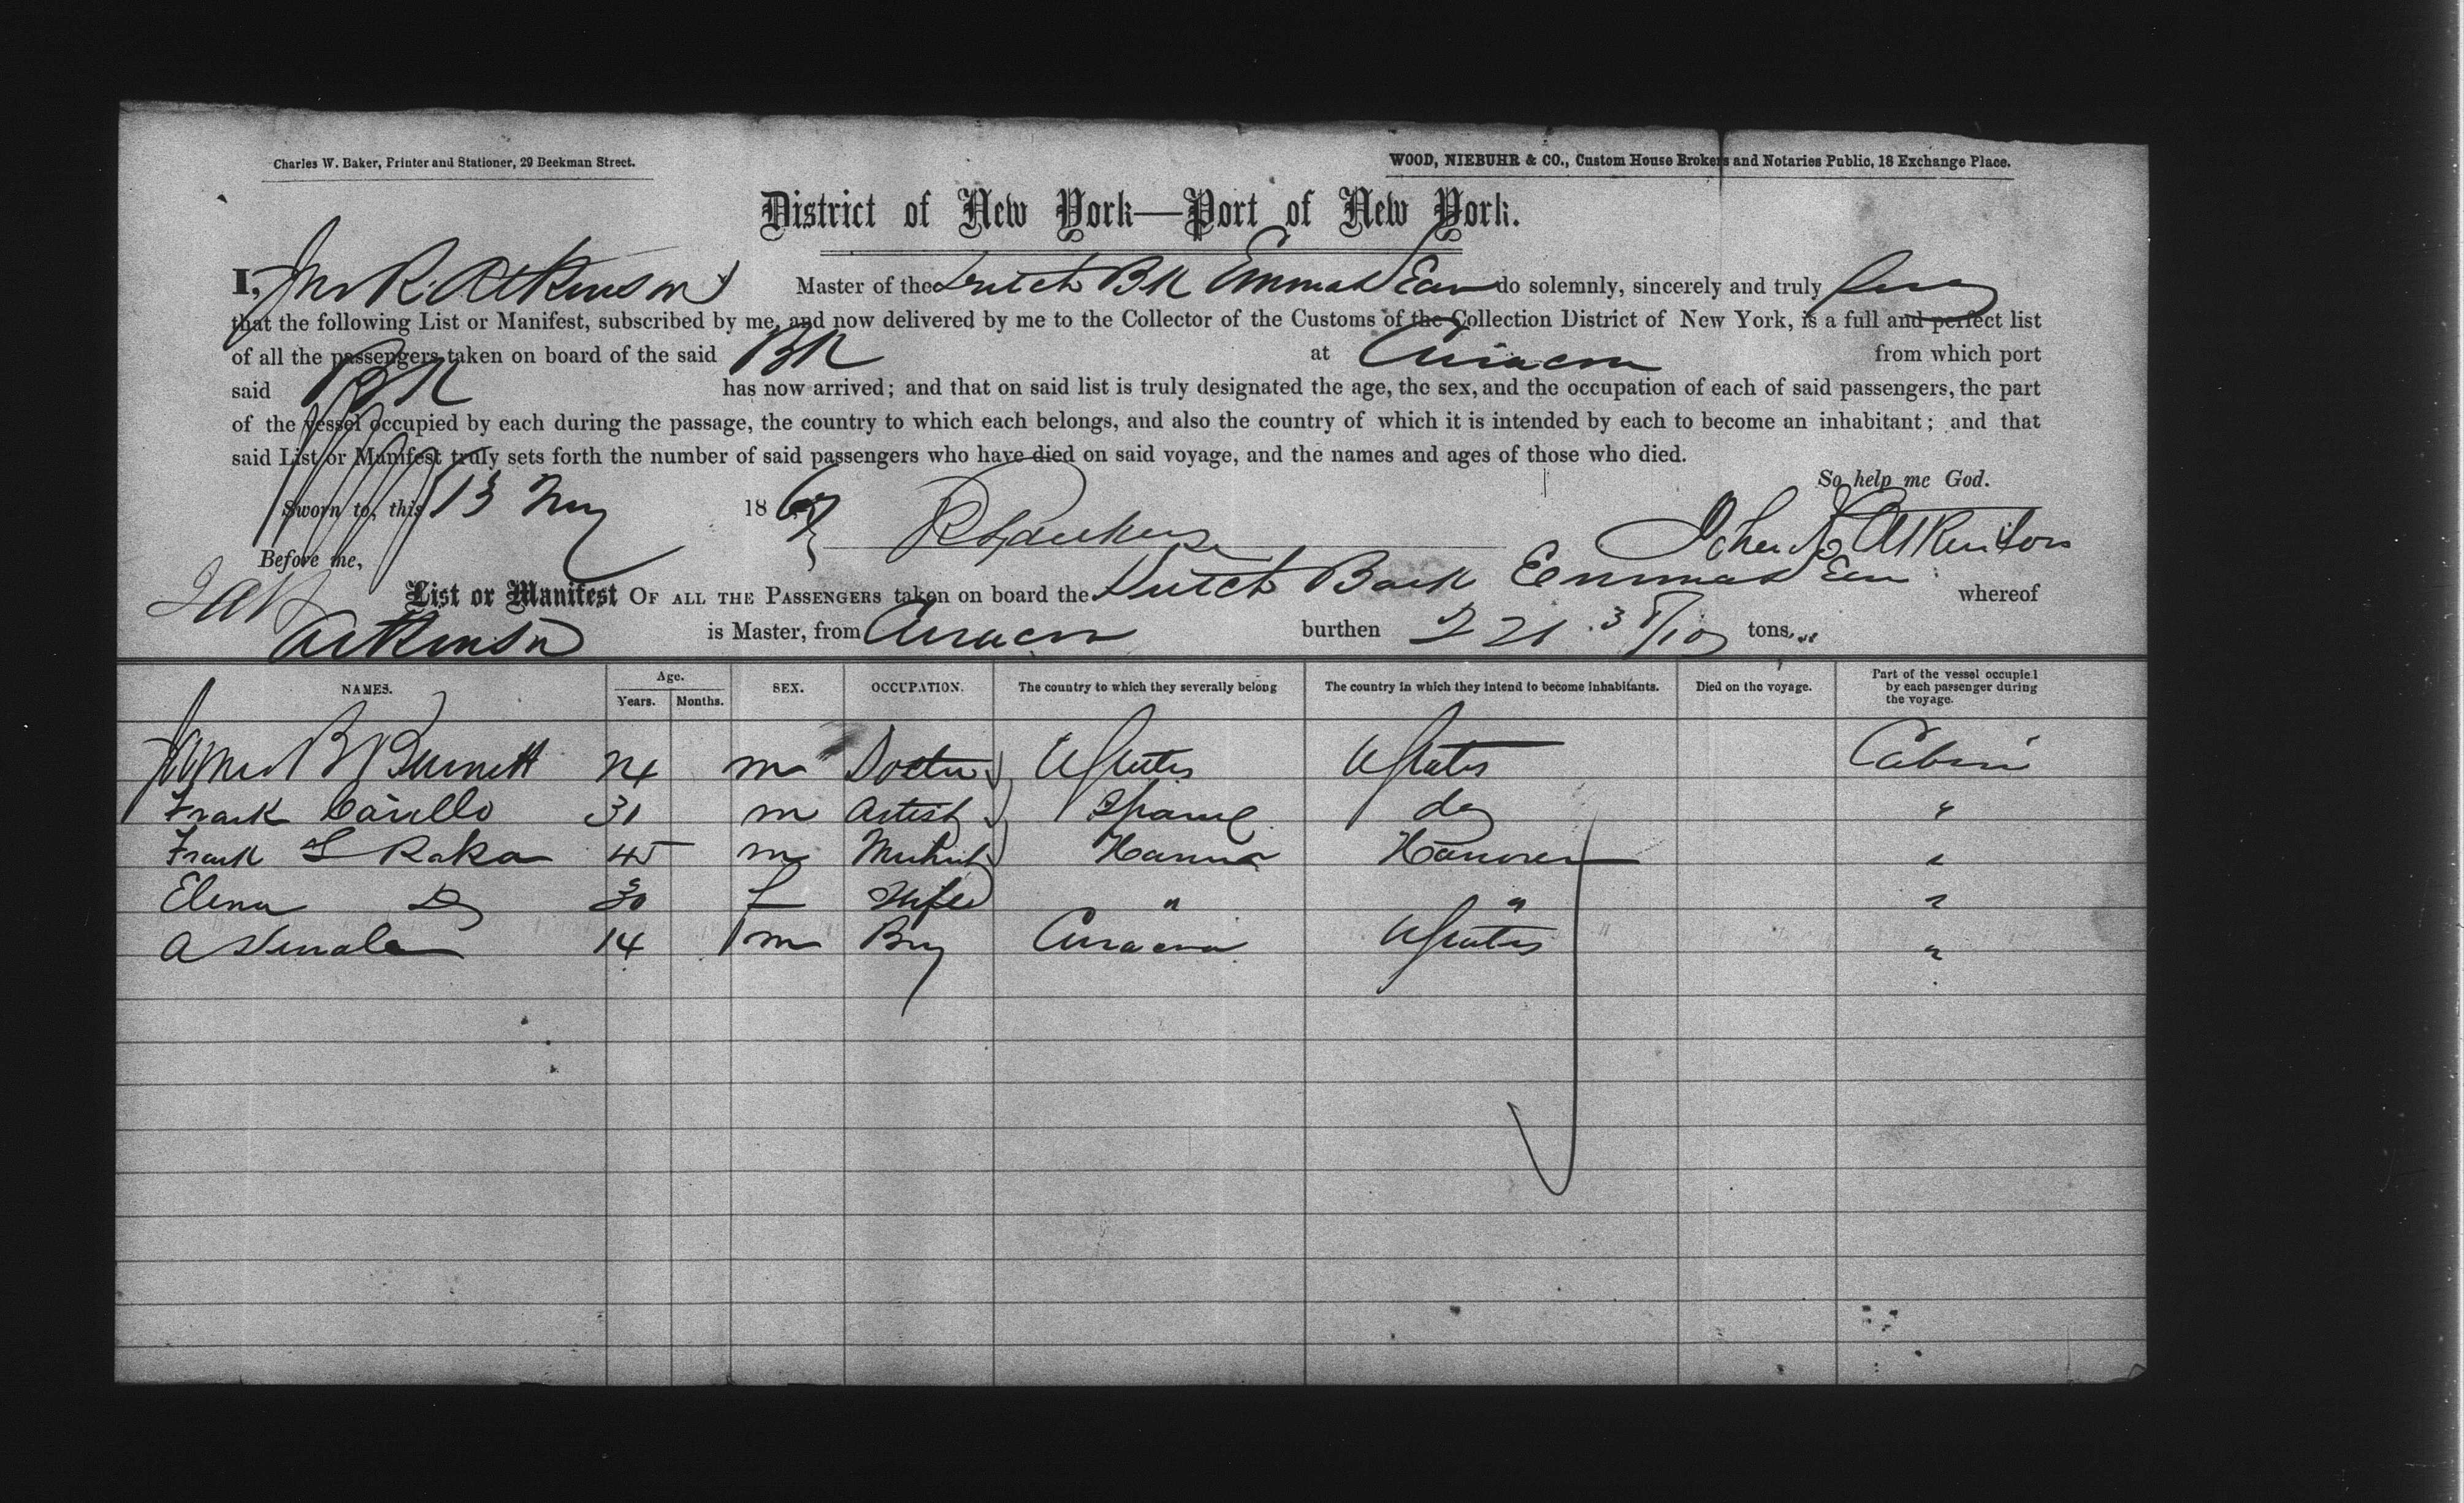 Charles W. Baker, Printer and Stationer, 29 Beekman Street.
WOOD, NIEBUHR & CO., Custom House Brokers and Notaries Public, 18 Exchange Place.
District of New York—Port of New York.
I, Jno R. Atkinson Master of the Dutch Bk Emma do solemnly, sincerely and truly
that the following List or Manifest, subscribed by me, and now delivered by me to the Collector of the Customs of the Collection District of New York, is a full and perfect list
of all the passengers taken on board of the said Bk at Curacoa from which port
said Bk has now arrived; and that on said list is truly designated the age, the sex, and the occupation of each of said passengers, the part
of the vessel occupied by each during the passage, the country to which each belongs, and also the country of which it is intended by each to become an inhabitant; and that
said List or Manifest truly sets forth the number of said passengers who have died on said voyage, and the names and ages of those who died.
So help me God.
Sworn to, this 13 186
John R Atkinson
Before me,
List or Manifest OF ALL THE PASSENGERS taken on board the Dutch Bark Emma whereof
Atkinson is Master, from Curacoa burthen 221 tons.
NAMES. Age. Years. Months. SEX. OCCUPATION. The country to which they severally belong The country in which they intend to become inhabitants. Died on the voyage. Part of the vessel occupied by each passenger during the voyage.
James B Burnett 24 m Doctor UStates UStates Cabin
Frank Carillo 31 m Artist Spain do "
Frank 45 m Hanover "
Elena Do 30 f Wife " " "
A 14 m Boy Curacoa UStates "